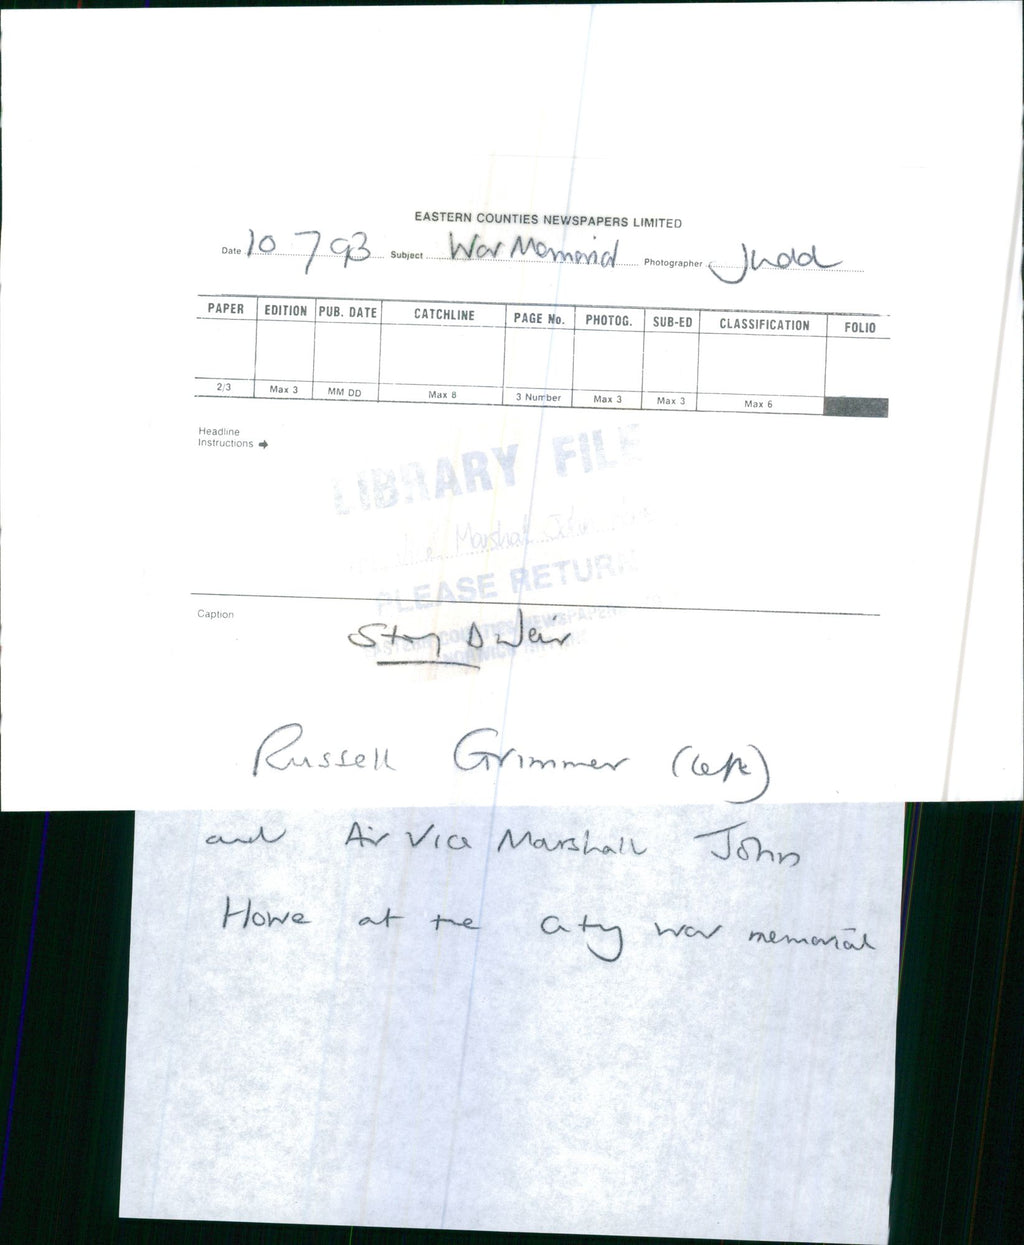 EASTERN COUNTIES NEWSPAPERS LIMITED
Date 10 7 93 Subject War Memorial Photographer Judd
PAPER EDITION PUB. DATE CATCHLINE PAGE No. PHOTOG. SUB-ED CLASSIFICATION FOLIO
2/3 Max 3 MM DD Max 8 3 Number Max 3 Max 3 Max 6
Headline
Instructions
LIBRARY FILE
Marshal John
PLEASE RETURN
Caption
Story D Weir
EASTERN COUNTIES NEWSPAPERS
NORWICH
Russell Grimmer (left)
and Air Vice Marshall John
Howe at the City war memorial